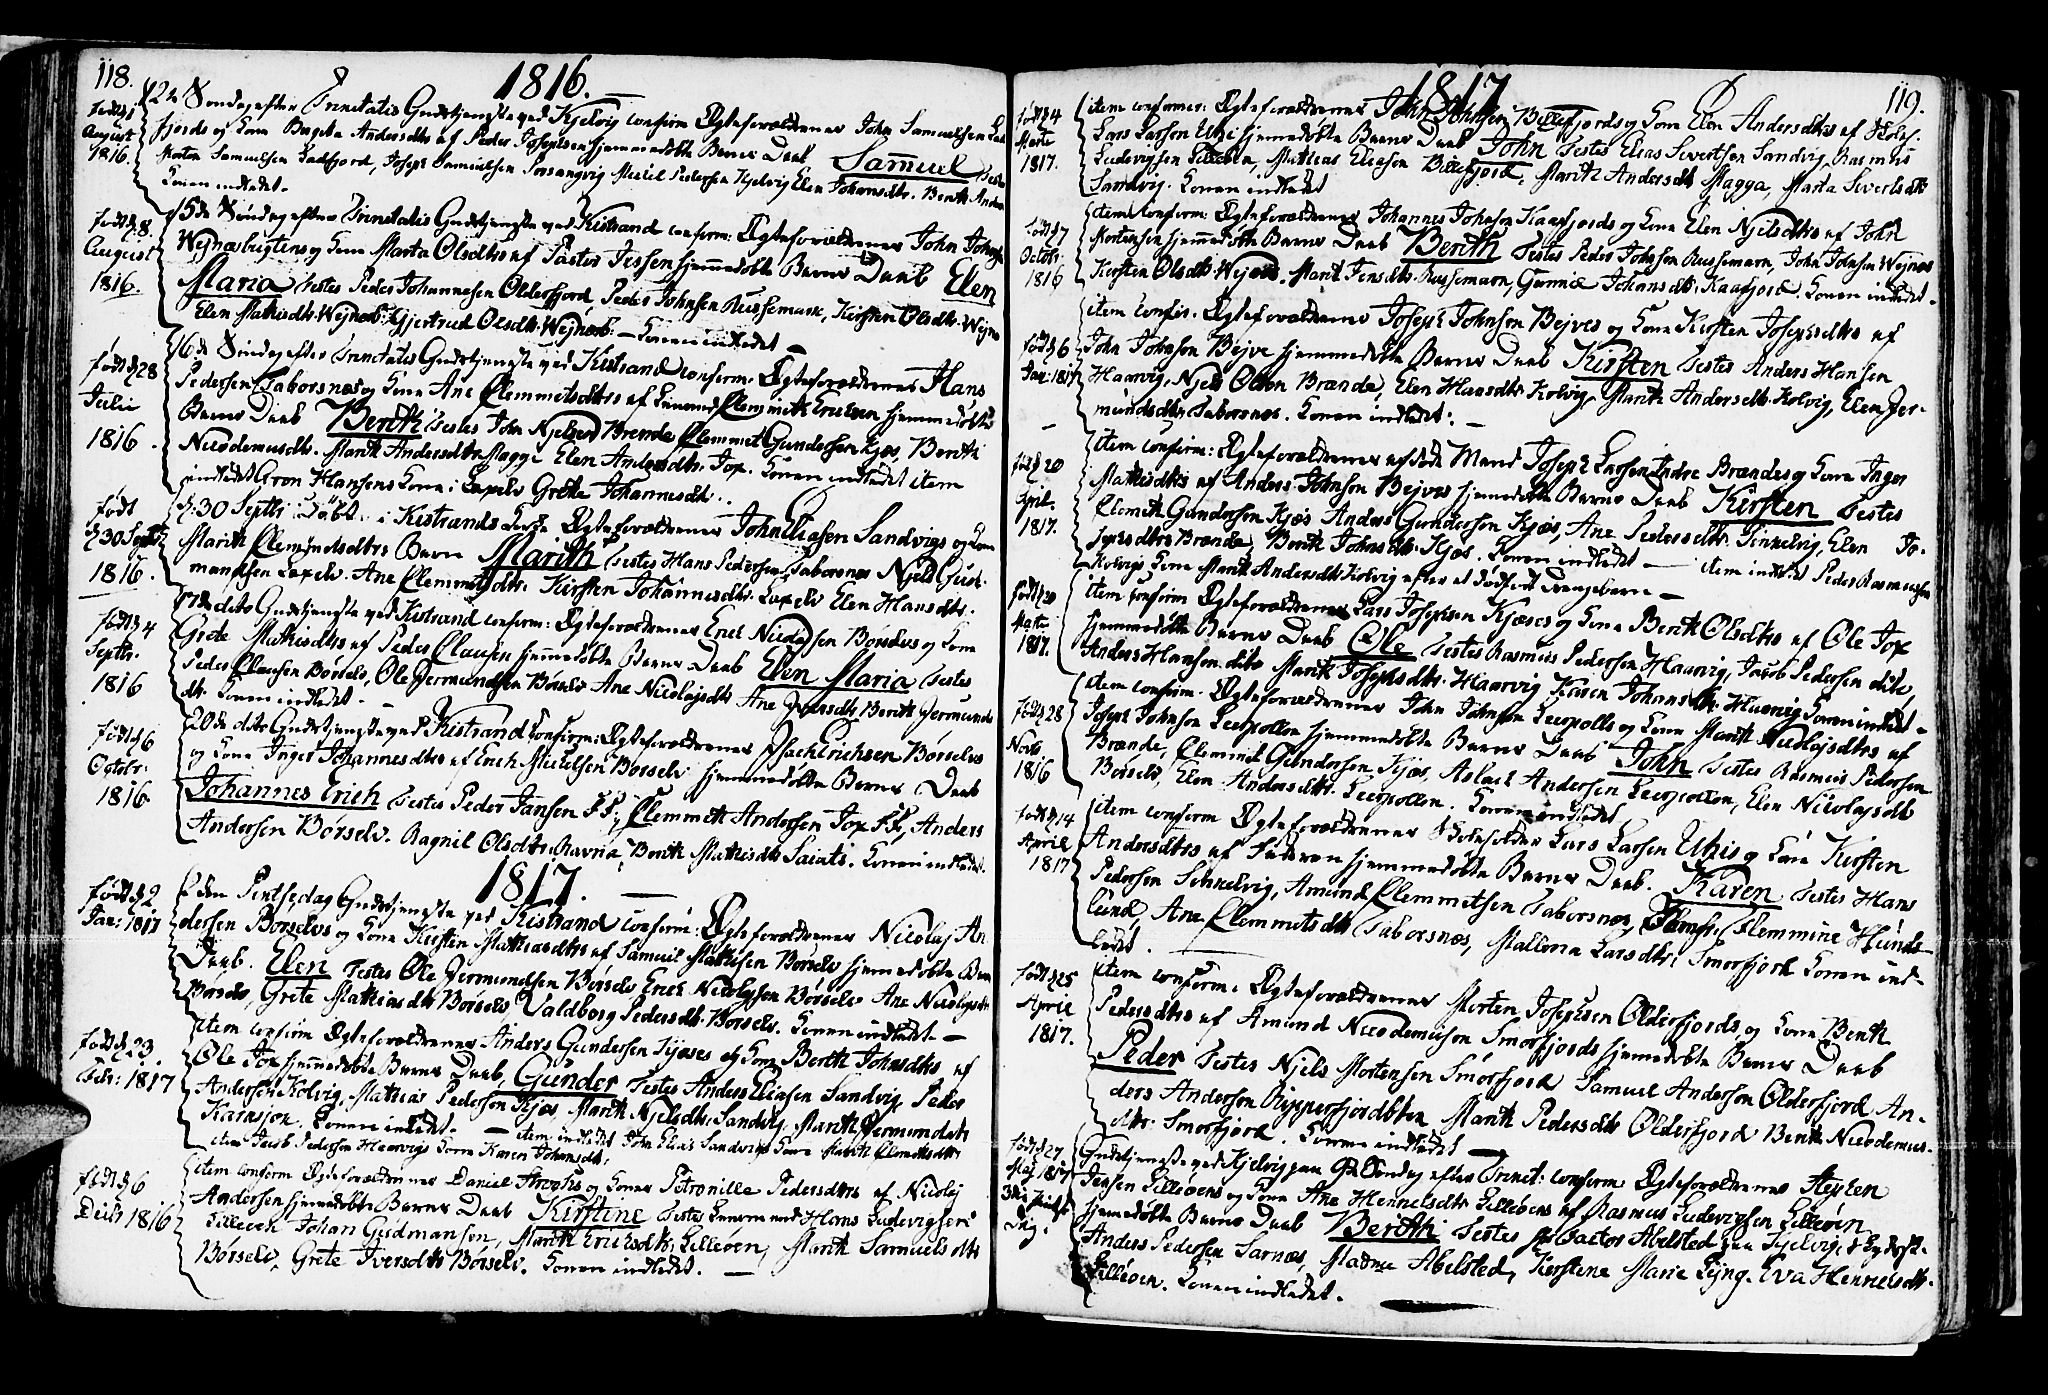 118.
1816.
født d 1 August 1816.
12te Søndag efter Trinitatis Gudstjenste ved Kjelvig confirm Ægteforældrenes John Samuelsen
fjords og Kone Andersdtrs af Peder Josephsen hjemmedøbte Barns Daab Samuel Testes
Morten Samuelsen Ladfjord, Joseph Samuelsen Porsangvig Mikkel Pedersen Kjelvig Elen Johansdtr. Berith Anders
Konen indledet.
født d 8 August 1816.
15de Søndag efter Trinitatis Gudstjenste ved Kistrand conferm: Ægteforældrenes John Johnsen
Wejnæsbugtens og Kone Marta Olsdtrs af Pastor Jessen hjemmedøbte Barns Daab Elen
Maria Testes Peder Johannesen Olderfjord, Peder Johnsen Russemark, Kirsten Olsdtr. Wejnæs
Elen Mathisdtr. Wejnæsb. Gjertrud Olsdtr. Wejnæsb. – Konen indledet –
født d 28 Julii 1816.
16de Søndag efter Trinitatis Gudstjenste ved Kistrand conferm: Ægteforældrenes Hans
Pedersen Taborsnæs og Kone Ane Clemmitsdtrs af Clemmit Erichsen hjemmedøbte
Barns Daab Berith Testes John Njelsen Brende Clemmet Gundersen Kjæs, Berith
Nicodemusdtr. Marith Andersdtr. Magge Elen Andersdtr. Jox. Konen indledet item
indledet Aron Hansens Kone i Laxelv Grete Johannesdtr.
født d 30 Septbr 1816.
d: 30 Septbr: Døbt i Kistrands Kerke Ægteforældrenes John Eliasen Sandvigs og Kone
Marith Clemmetsdtrs Barn Marith Testes Hans Pedersen Taborsnæs Njels Gud-
mundsen Laxelv. Ane Clemmetsdtr. Kirsten Johannesdtr. Laxelv Elen Hansdtr.
født d 4 Septbr. 1816
17de dito Gudstjenste ved Kistrand conferm: Ægteforældrenes Erich Nicolajsen Børselvs og Kone
Grete Mathisdtrs af Peder Clausen hjemmedøbte Barns Daab Elen Maria Testes
Peder Clausen Børselv, Ole Germundsen Børselv Ane Nicolajsdtr Ane Jensdtr, Berith Germunds
dtr. Konen indledet. –
født d 6 Octobr: 1816.
20de dito Gudstjenste ved Kistrand Confirm: Ægteforældrenes Isach Erichsen Børselvs
og Kone Inger Johannesdtrs af Erich Mickelsen Børselv hjemmedøbte Barns Daab
Johannes Erich Testes Peder Jansen, Clemmet Andersen Jox, Anders
Andersen Børselv. Ragnil Olsdtr. Ravna, Berith Mathisdtr Saiats. Konen indledet.
1817.
født d 2 Jan: 1817
2den Pintsedag Gudstjenste ved Kistrand conferm: Ægteforældrenes Nicolaj An
dersen Børselvs og Kone Kirsten Mathiasdtrs af Samuel Mathisen Børselv hjemmedøbte Barns
Daab. Elen Testes Ole Germundsen Børselv Erich Nicolajsen Børselv Ane Nicolajsdtr
Børselv, Grete Mathiasdtr Børselv, Valdborg Pedersdtr. Børselv. Konen indledet. –
født d 23 Febr: 1817
item confirm Ægteforældrenes Anders Gundersen Kjæses og Kone Berith Johnsdtrs af
Ole Jox hjemmedøbte Barns Daab, Gunder Testes Anders Eliasen Sandvig, Peder
Andersen Kolvig, Mathias Pedersen Kjæs, Marith Njelsdtr, Sandvig, Marith Germundsdtr
Karasjok. Konen indledet. – item indledet John Elias Sandvigs Kone Marith Clemetsdtr
item Jacob Pedersen Haarvigs Kone Karen Johansdtr.
født d 6 Decbr 1816
item conferm Ægteforældrenes Daniel Strophus og Kones Petronille Pedersdtrs af Nicolaj
Andersen hjemmedøbte Barns Daab Kirstine Testes Hans Ludevigsen
Lilleøen Johan Gudmansøn, Marith Erichsdtr, Lilleøen, Marith Samuelsdtr
Børselv, Grete Iversdtr Børselv. Konen indledet. –
119.
1817
født d 4 Marts 1817.
item confermer. Ægteforældrenes John Johnsen Billefjords og Kone Elen Andersdtrs af
Lars Larsøn Utzi hjemmedøbte Barns Daab John Testes Elias Sivertsen Sandvig Rasmus
Ludevigsen Lilleøen, Mathias Eliasen Billefjord, Marith Andersdtr Magga, Marta Sivertsdtr
Sandvig. Konen indledet
født d 7 Octobr. 1816
item Conferm: Ægteforældrenes Johannes Johnsøn Kaafjords og Kone Elen Njelsdtrs af John
Mortensen hjemmedøbte Barns Daab Berith Testes Peder Johnsøn Russemarn, John Johnsen Wejnæs
Kirsten Olsdtr. Wejnæs. Marit Jensdtr. Russemarn, Gunniæ Johansdtr. Kaafjord. Konen indledet.
født d 6 Jan: 1817
item Confir. Ægteforældrenes Joseph Johnsøn Bejves og Kone Kirsten Josephsdtrs af
John Johnsøn Bejve hjemmedøbte Barns Daab Kirsten Testes Anders Hansen
Haarvig, Njels Olsøn Brænde, Elen Hansdtr. Kolvig, Marith Andersdtr. Kolvig, Elen Ger-
mundsdtr. Taborsnæs. Konen indledet. –
født d 20 April. 1817.
item conferm: Ægteforældrenes afdøde Mand Joseph Larsen Indre Brændes og Kone Inger
Mathisdtrs af Anders Johnsøn Bejves hjemmedøbte Barns Daab Kirsten Testes
Clemit Gundersøn Kjæs Anders Gundersøn Kjæs, Ane Pedersdtr. Sinkelvig, Elen Jo-
sephsdtrs Brænde, Berith Johnsdtr. Kjæs. Konen indledet – item indledet Peder Rasmussens
Kolvigs Kone Marith Andersdtr. Kolvig efter et dødfødt Drengebarn –
født d 20 Marts 1817.
item confirm Ægteforældrenes Lars Josephsen Kjæses og Kone Berith Olsdtrs af Ole Jox
hjemmedøbte Barns Daab Ole Testes Rasmus Pedersen Haarvig, Jacob Pedersen dito,
Anders Hansøn dito Marith Josephsdtr. Haarvig Karen Johansdtr. Haarvig Konen indledet –
født d 28 Novbr 1816
item conferm. Ægteforældrenes John Johnsøn Leerpolls og Kone Marith Nicolajsdtrs af
Joseph Johnsøn Leerpollen hjemmedøbte Barns Daab John Testes Rasmus Pedersøn
Brænde, Clemmet Gundersøn Kjæs, Aslach Andersøn Leerpollen, Elen Nicolajsdtr
Børselv, Elen Andersdtr. Leerpollen. Konen indledet
født d 14 April 1817
item conferm Ægteforældrenes Lars Larsen Utzis og Kone Kirsten
Andersdtrs af Faderen hjemmedøbte Barns Daab. Karen Testes Hans
Pedersøn Sinkelvig, Amund Clemmitsen Taborsnæs, Clemmine Hunds-
lund, Ane Clemmitsdtr Taborsnæs, Mallena Larsdtr. Smorfjord Konen ind-
ledet.
født d 25 April 1817.
item conferm: Ægteforældrenes Morten Josephsen Olderfjords, og Kone Berith
Pedersdtrs af Amund Nicodemusøn Smorfjords hjemmedøbte Barns Daab
Peder Testes Njels Mortensen Smorfjord Samuel Andersøn Olderfjord An-
ders Andersøn Ripperfjordbten Marith Pedersdtr Olderfjord Berith Nicodemus-
dtr. Smorfjord. Konen indledet –
født d 27 Maj 1817 3die Pintse Dag.
Gudstjenste ved Kjelvig paa 9de Søndag efter Trinit: conferm Ægteforældrenes
Jensen Lilleøens og Kone Ane Hennelsdtr Lilleøens af Rasmus Ludevigsen Lilleøen
hjemmedøbte Barns Daab Berith Testes Factor Abelsted paa Kjelvig,
Anders Pedersen Sarnæs, Madme Abelsted, Kerstene Marie Lejng. Eva Hennelsdtr.
Lilleøen. Konen indledet.